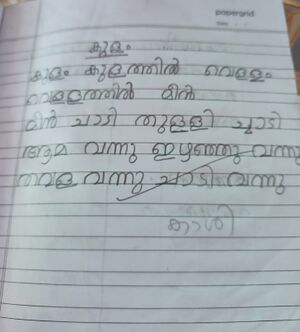 papergrid
കുളം
കുളം കുളത്തിൽ വെള്ളം
വെള്ളത്തിൽ മീൻ
മീൻ ചാടി തുള്ളി ച്ചാടി
ആമ വന്നു ഇഴഞ്ഞു വന്നു
തവള വന്നു ചാടി വന്നു
കാശി